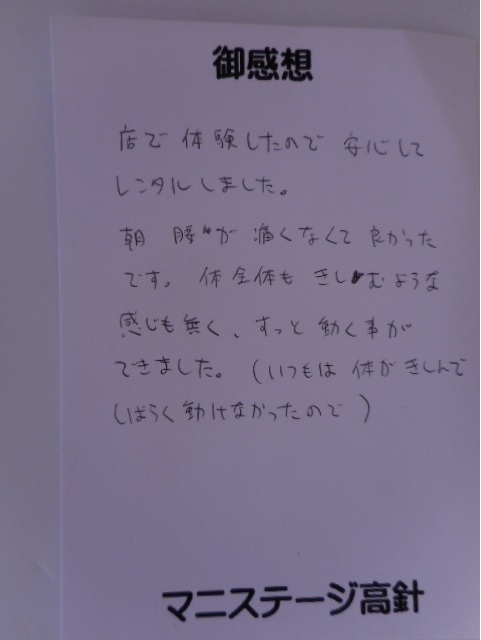 御感想
店で 体験したので 安心して
レンタルしました。
朝 腰が 痛くなくて 良かった
です。 体全体も きしむような
感じも無く、すっと 動く事が
できました。(いつもは 体が きしんで
しばらく動けなかったので)
マニステージ高針